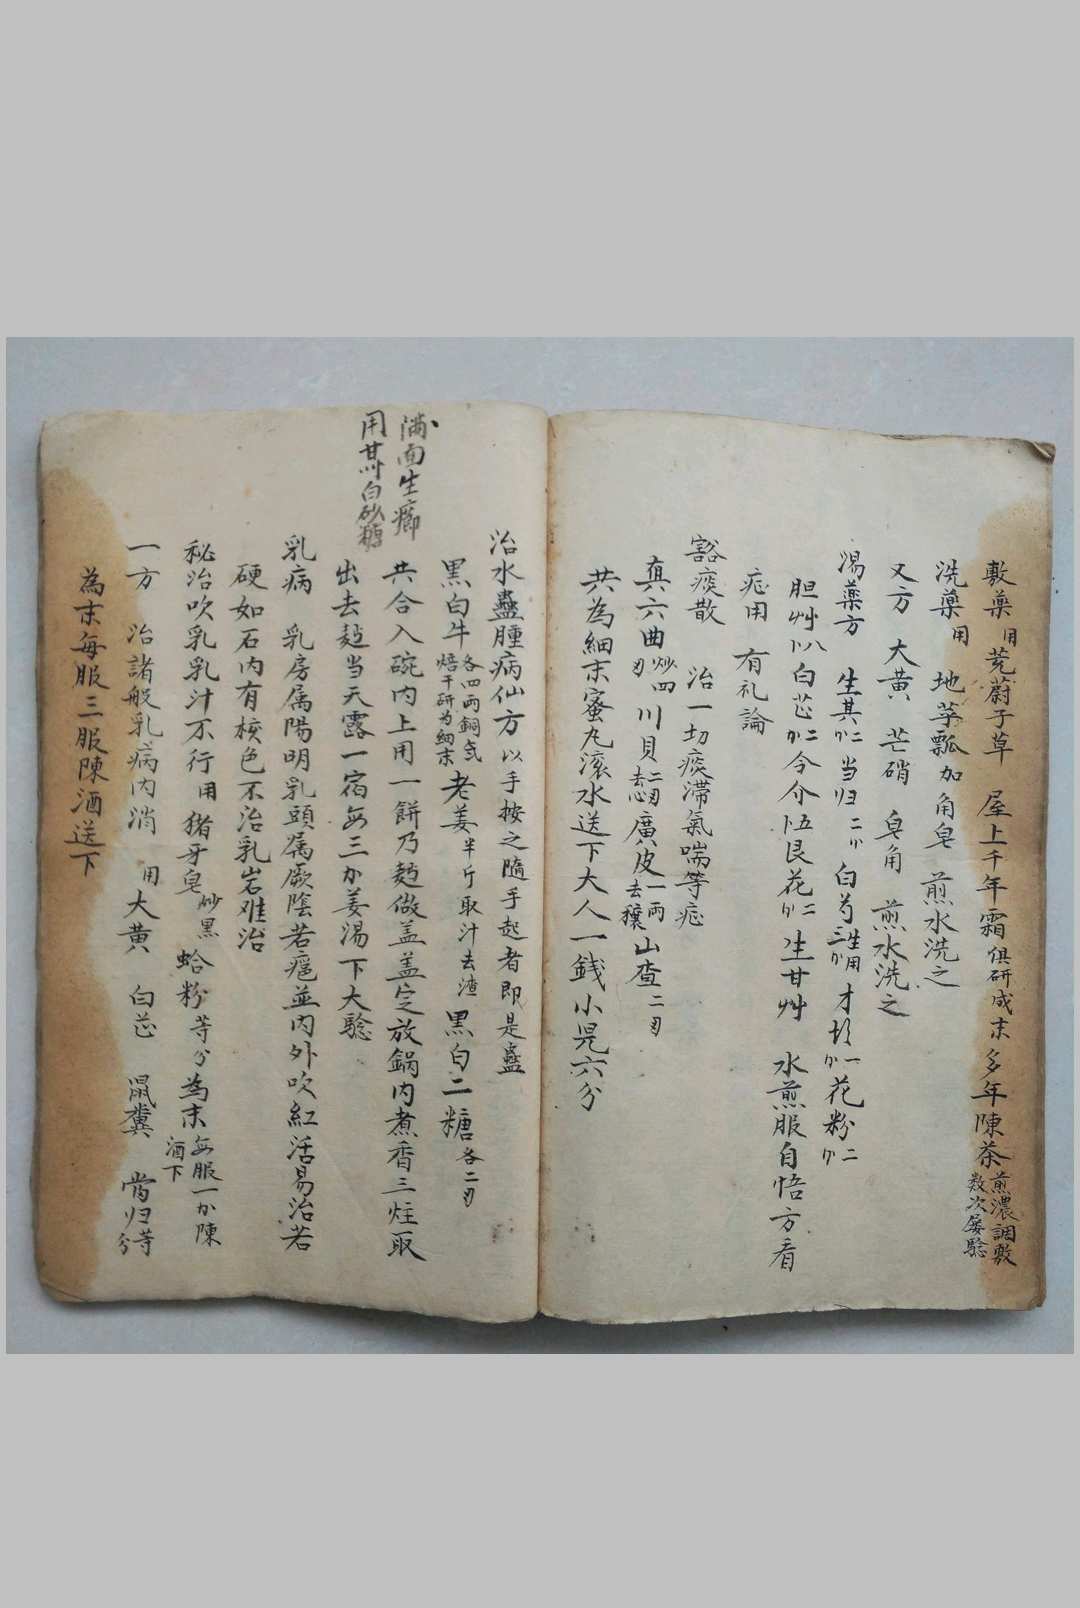 敷藥用茺蔚子草 屋上千年霜俱研成末多年陳茶煎濃調敷数次屡騐
洗藥用 地芋瓢加角皂 煎水洗之
又方 大黄 芒硝 皂角 煎水洗之
湯藥方 生其二 当归二 白芍生用三 一花粉二
胆艸八白芷二令介五艮花二生甘艸 水煎服自悟方看
症用 有礼論
豁痰散 治一切痰滞氣喘等症
真六曲炒四刃川貝二刃去心廣皮一両去穰山查二刃
共為細末蜜丸滚水送下大人一銭小児六分
治水蠱腫病仙方以手按之隨手起者即是蠱
黒白牛各四両銅瓦焙干研为細末老姜半斤取汁去渣黒白二糖各二刃
共合入碗内上用一餅乃麪做盖盖定放鍋内煮香三炷取
出去麪当天露一宿每三姜湯下大騐
满面生癤
用甘艸白砂糖
乳病 乳房属陽明乳頭属厥陰若瘧並内外吹紅活易治若
硬如石内有核色不治乳岩难治
秘治吹乳乳汁不行用猪牙皂炒黒蛤粉等分為末每服一陳酒下
一方 治諸般乳病内消 用大黄 白芷 鼠糞 当归等分
為末每服三服陳酒送下